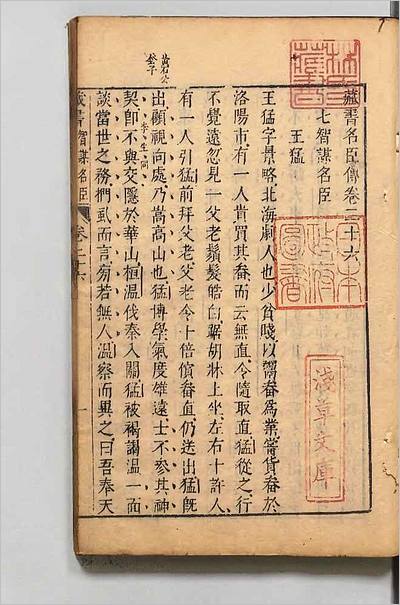 藏書名臣傳卷二十六
七智謀名臣
王猛
王猛字景略北海劇人也少貧賤以鬻畚為業嘗貨畚於
洛陽市有一人貴買其畚而云無直令隨取直猛從之行
不覺遠忽見一父老鬚髮皓白踞胡牀上坐左右十許人
有一人引猛前拜父老父老令十倍償畚直仍送出猛既
出顧視向處乃嵩高山也猛博學氣度雄遠士不參其神
契卽不與交隱於華山桓溫伐秦入關猛被褐謁溫一面
談當世之務捫虱而言旁若無人溫察而異之曰吾奉天
黃石公
李生同
藏書智謀名臣
卷二六
一
淺草文庫